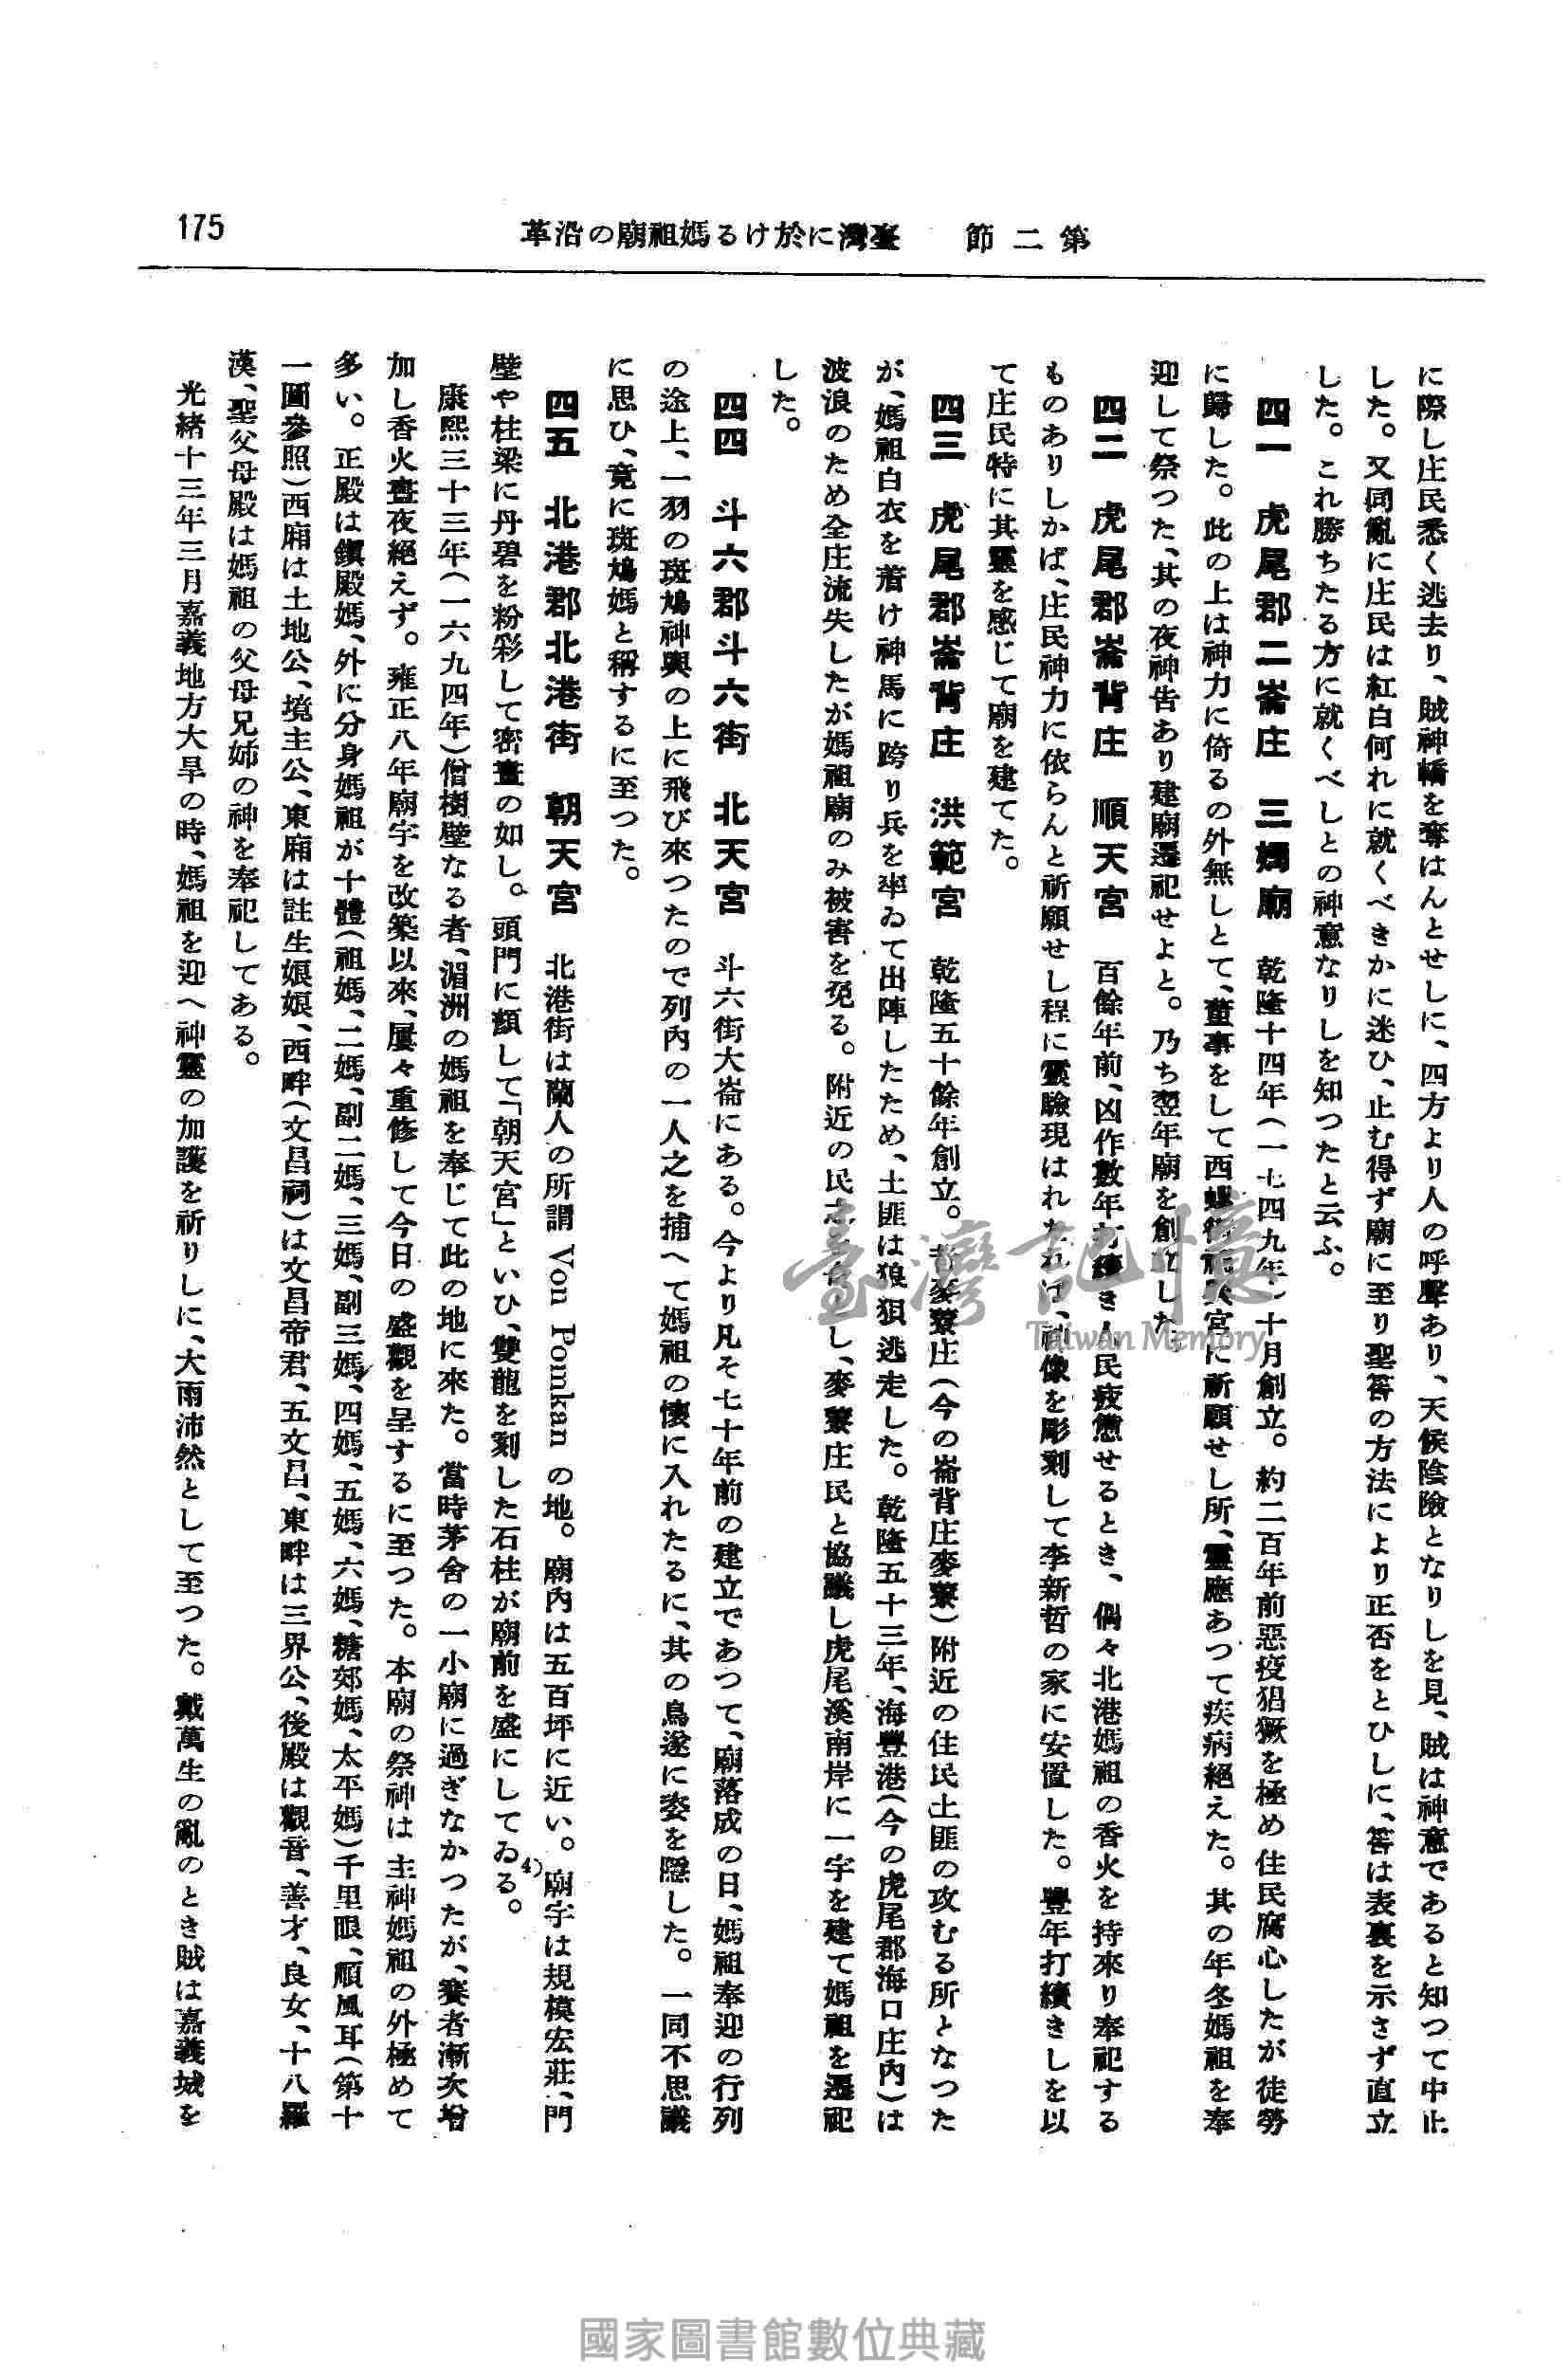 175
革沿の廟祖媽るけ於に灣臺　節二第
に際し庄民悉く逃去り、賊神轎を奪はんとせしに、四方より人の呼聲あり、天候陰險となりしを見、賊は神意であると知つて中止
した。又同亂に庄民は紅白何れに就くべきかに迷ひ、止む得ず廟に至り聖筶の方法により正否をとひしに、筶は表裏を示さず直立
した。これ勝ちたる方に就くべしとの神意なりしを知つたと云ふ。
四一　虎尾郡二崙庄　三媽廟　乾隆十四年(一七四九年)十月創立。約二百年前惡疫猖獗を極め住民腐心したが徒勞
に歸した。此の上は神力に倚るの外無しとて、董事をして西螺街宮に祈願せし所、靈應あつて疾病絕えた。其の年冬媽祖を奉
迎して祭つた、其の夜神告あり建廟遷祀せよと。乃ち翌年廟を創立した。
四二　虎尾郡崙背庄　順天宮　百餘年前、凶作數年打續き人民疲憊せるとき、偶々北港媽祖の香火を持來り奉祀する
ものありしかば、庄民神力に依らんと祈願せし程に靈驗現はれたれば、神像を彫刻して李新哲の家に安置した。豐年打續きしを以
て庄民特に其靈を感じて廟を建てた。
四三　虎尾郡崙背庄　洪範宮　乾隆五十餘年創立。昔麥寮庄(今の崙背庄麥寮)附近の住民土匪の攻むる所となつた
が、媽祖白衣を着け神馬に跨り兵を率ゐて出陣したため、土匪は狼狽逃走した。乾隆五十三年、海豐港(今の虎尾郡海口庄內)は
波浪のため全庄流失したが媽祖廟のみ被害を免る。附近の民し、麥寮庄民と協議し虎尾溪南岸に一宇を建て媽祖を遷祀
した。
四四　斗六郡斗六街　北天宮　斗六街大崙にある。今より凡そ七十年前の建立であつて、廟落成の日、媽祖奉迎の行列
の途上、一羽の斑鳩神輿の上に飛び來つたので列內の一人之を捕へて媽祖の懷に入れたるに、其の鳥遂に姿を隱した。一同不思議
に思ひ、竟に斑鳩媽と稱するに至つた。
四五　北港郡北港街　朝天宮　北港街は蘭人の所謂 Von Pomkan の地。廟內は五百坪に近い。廟宇は規模宏莊、門
壁や柱梁に丹碧を粉彩して密畫の如し。頭門に顏して「朝天宮」といひ、雙龍を刻した石柱が廟前を盛にしてゐる。4)
康熙三十三年(一六九四年)僧樹壁なる者、湄洲の媽祖を奉じて此の地に來た。當時茅舍の一小廟に過ぎなかつたが、賽者漸次增
加し香火晝夜絕えず。雍正八年廟宇を改築以來、屢々重修して今日の盛觀を呈するに至つた。本廟の祭神は主神媽祖の外極めて
多い。正殿は鎭殿媽、外に分身媽祖が十體(祖媽、二媽、副二媽、三媽、副三媽、四媽、五媽、六媽、糖郊媽、太平媽)千里眼、順風耳(第十
一圖參照)西廂は土地公、境主公、東廂は註生娘娘、西畔(文昌祠)は文昌帝君、五文昌、東畔は三界公、後殿は觀音、善才、良女、十八羅
漢、聖父母殿は媽祖の父母兄姉の神を奉祀してある。
光緒十三年三月嘉義地方大旱の時、媽祖を迎へ神靈の加護を祈りしに、大雨沛然として至つた。戴萬生の亂のとき賊は嘉義城を
臺灣記憶
Taiwan Memory
國家圖書館數位典藏